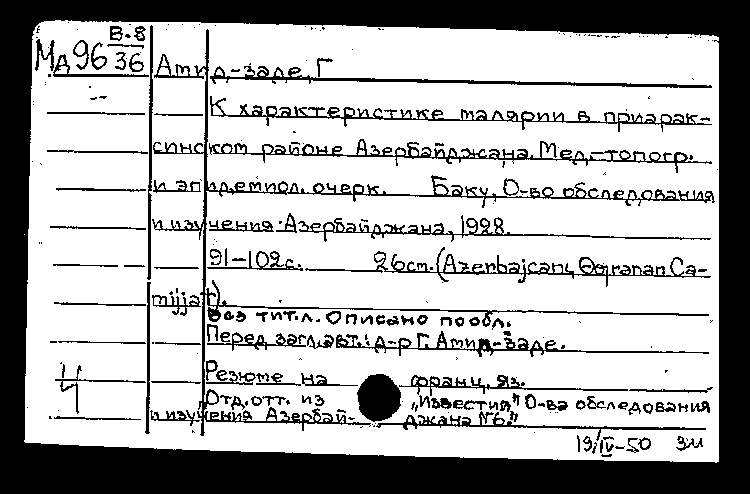 В-8
Мд96 36
Атид-заде, Г
К характеристике малярии в приарак-
синском районе Азербайджана. Мед.-топогр.
и эпидемиол. очерк. Баку, О-во обследования
и изучения Азербайджана, 1928.
91-102с. 26см. (Azerbajcanь Ɵqrənən Cə-
mijjət).
Без тит.л. Описано по обл.
Перед загл.авт.: д-р Г. Атид-Заде.
Резюме на франц. яз.
Отд.отт. из „Известия" О-ва обследования
и изучения Азербай- джана №6."
Ч
19/IV-50 ЗМ